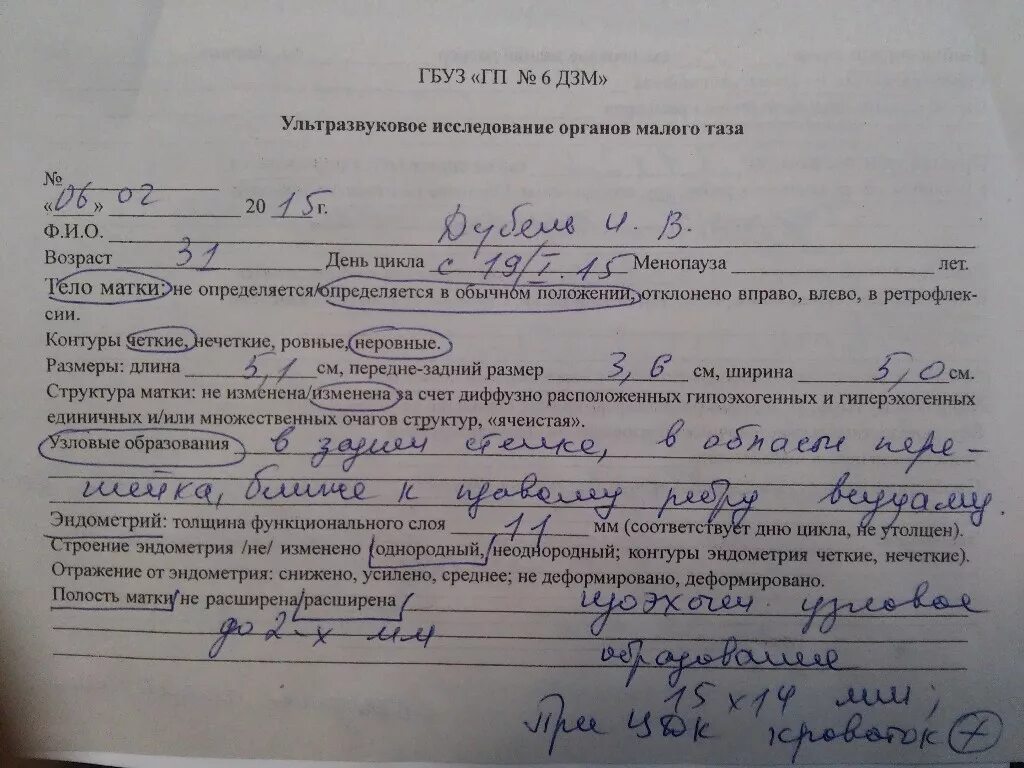 ГБУЗ «ГП № 6 ДЗМ»
Ультразвуковое исследование органов малого таза
№
«06» 02 2015г.
Ф.И.О. Дубень И. В.
Возраст 31 День цикла с 19/I.15 Менопауза лет.
Тело матки: не определяется/определяется в обычном положении, отклонено вправо, влево, в ретрофлек-
сии.
Контуры четкие, нечеткие, ровные, неровные.
Размеры: длина 5,1 см, передне-задний размер 3,6 см, ширина 5,0 см.
Структура матки: не изменена/изменена за счет диффузно расположенных гипоэхогенных и гиперэхогенных
единичных и/или множественных очагов структур, «ячеистая».
Узловые образования в задней стенке, в области пере-
шейка, ближе к правому ребру
Эндометрий: толщина функционального слоя 11 мм (соответствует дню цикла, не утолщен).
Строение эндометрия /не/ изменено (однородный, неоднородный; контуры эндометрия четкие, нечеткие).
Отражение от эндометрия: снижено, усилено, среднее; не деформировано, деформировано.
Полость матки не расширена/расширена
до 2-х мм
изоэхоген. узловое
образование
15 х 14 мм;
При ЦДК кровоток +